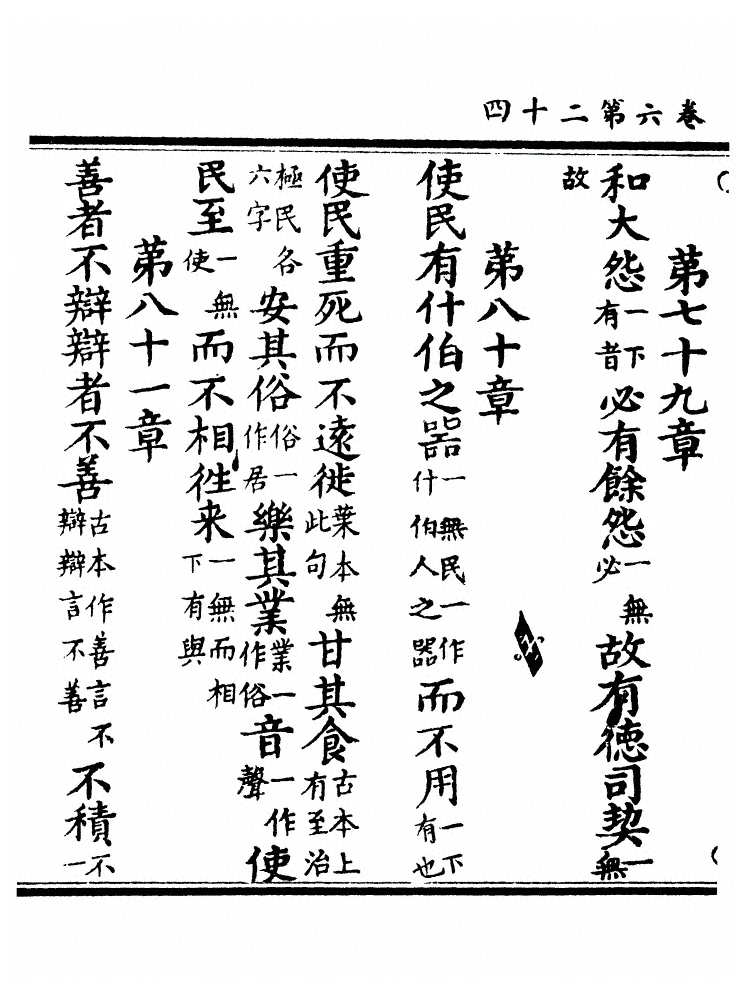 卷六第二十四
第七十九章
和大怨一下有者必有餘怨一無必故有德司契一無
故
第八十章
使民有什伯之器一無民一作什伯人之器而不用一下有也
使民重死而不遠徙葉本無此句甘其食古本上有至治
極民各六字安其俗俗一作居樂其業業一作俗音一作聲使
民至一無使而不相徃来一無而相下有與
第八十一章
善者不辯辯者不善古本作善言不辯辯言不善不積不一